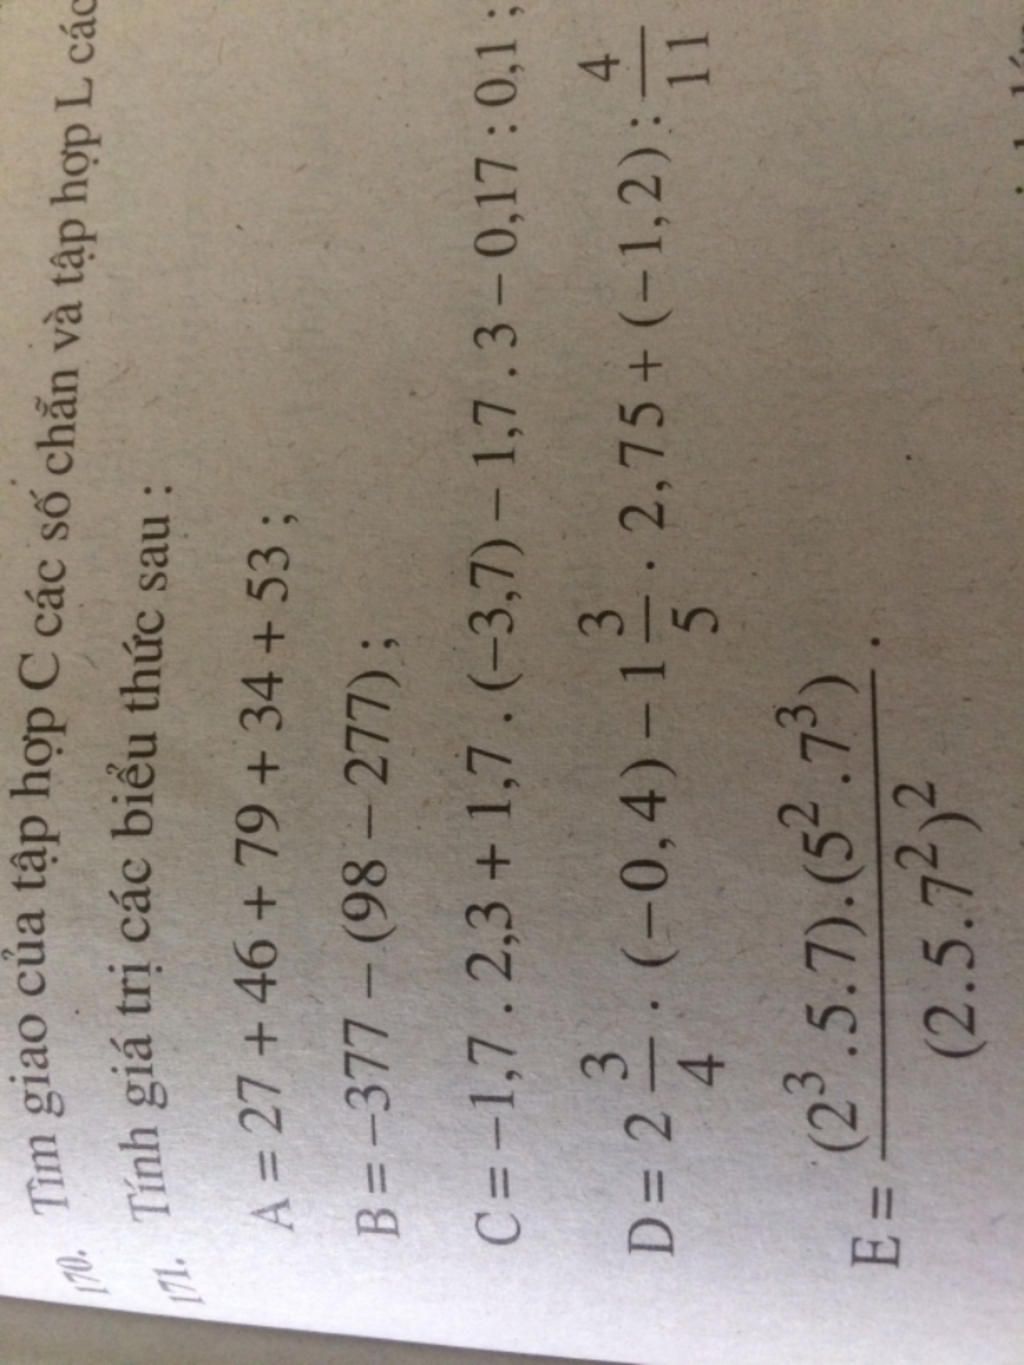 170. Tìm giao của tập hợp C các số chẵn và tập hợp L các
171. Tính giá trị các biểu thức sau :
A = 27 + 46 + 79 + 34 + 53 ;
B = −377 − (98 − 277) ;
C = −1,7 . 2,3 + 1,7 . (−3,7) − 1,7 . 3 − 0,17 : 0,1 ;
D = 2 3/4 . (−0,4) − 1 3/5 . 2,75 + (−1,2) : 4/11
E = (2³.5.7).(5².7³) / (2.5.7²)² .